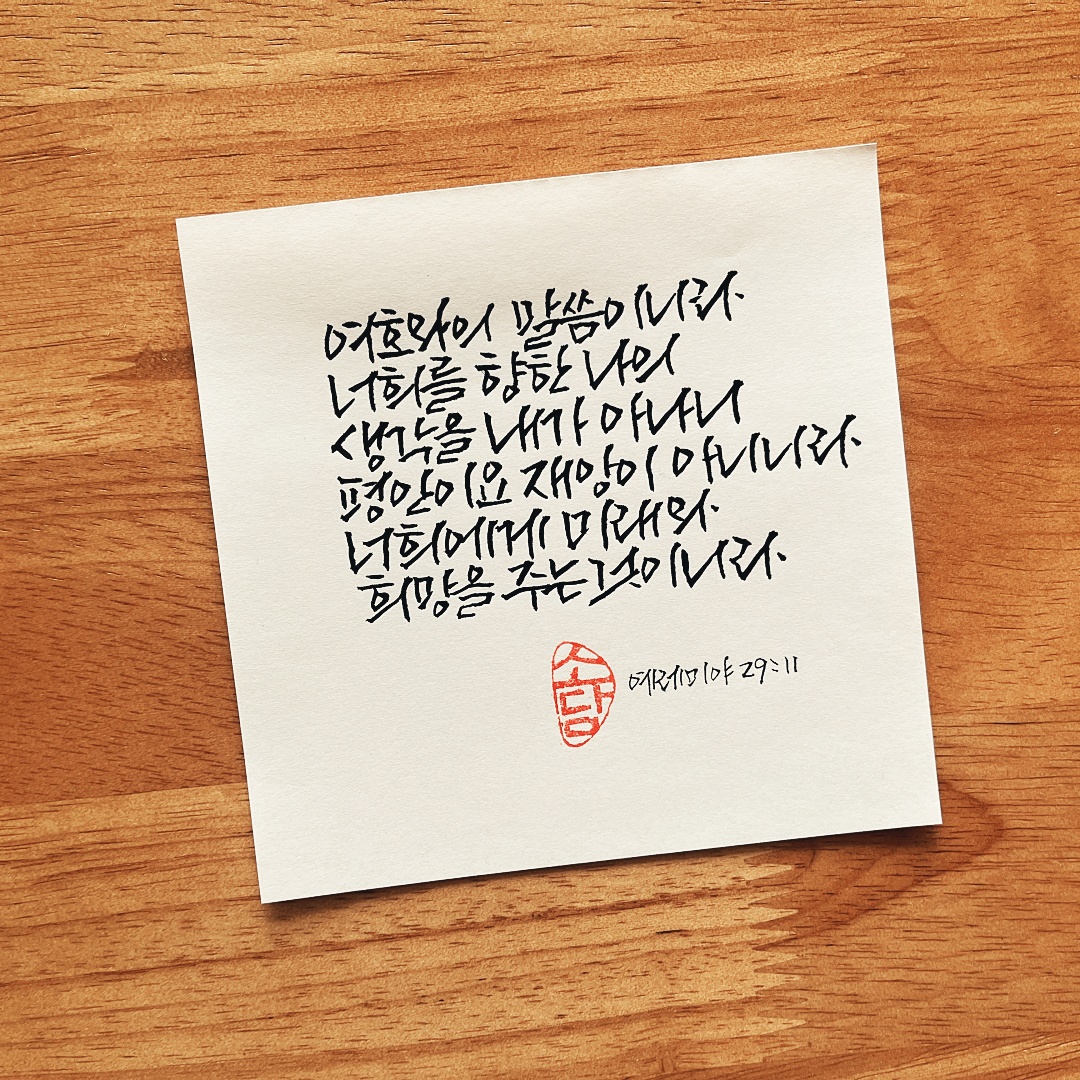 여호와의 말씀이니라.
너희를 향한 나의
생각을 내가 아나니
평안이요 재앙이 아니니라.
너희에게 미래와
희망을 주는것이니라.
소담
여레미야 29:11